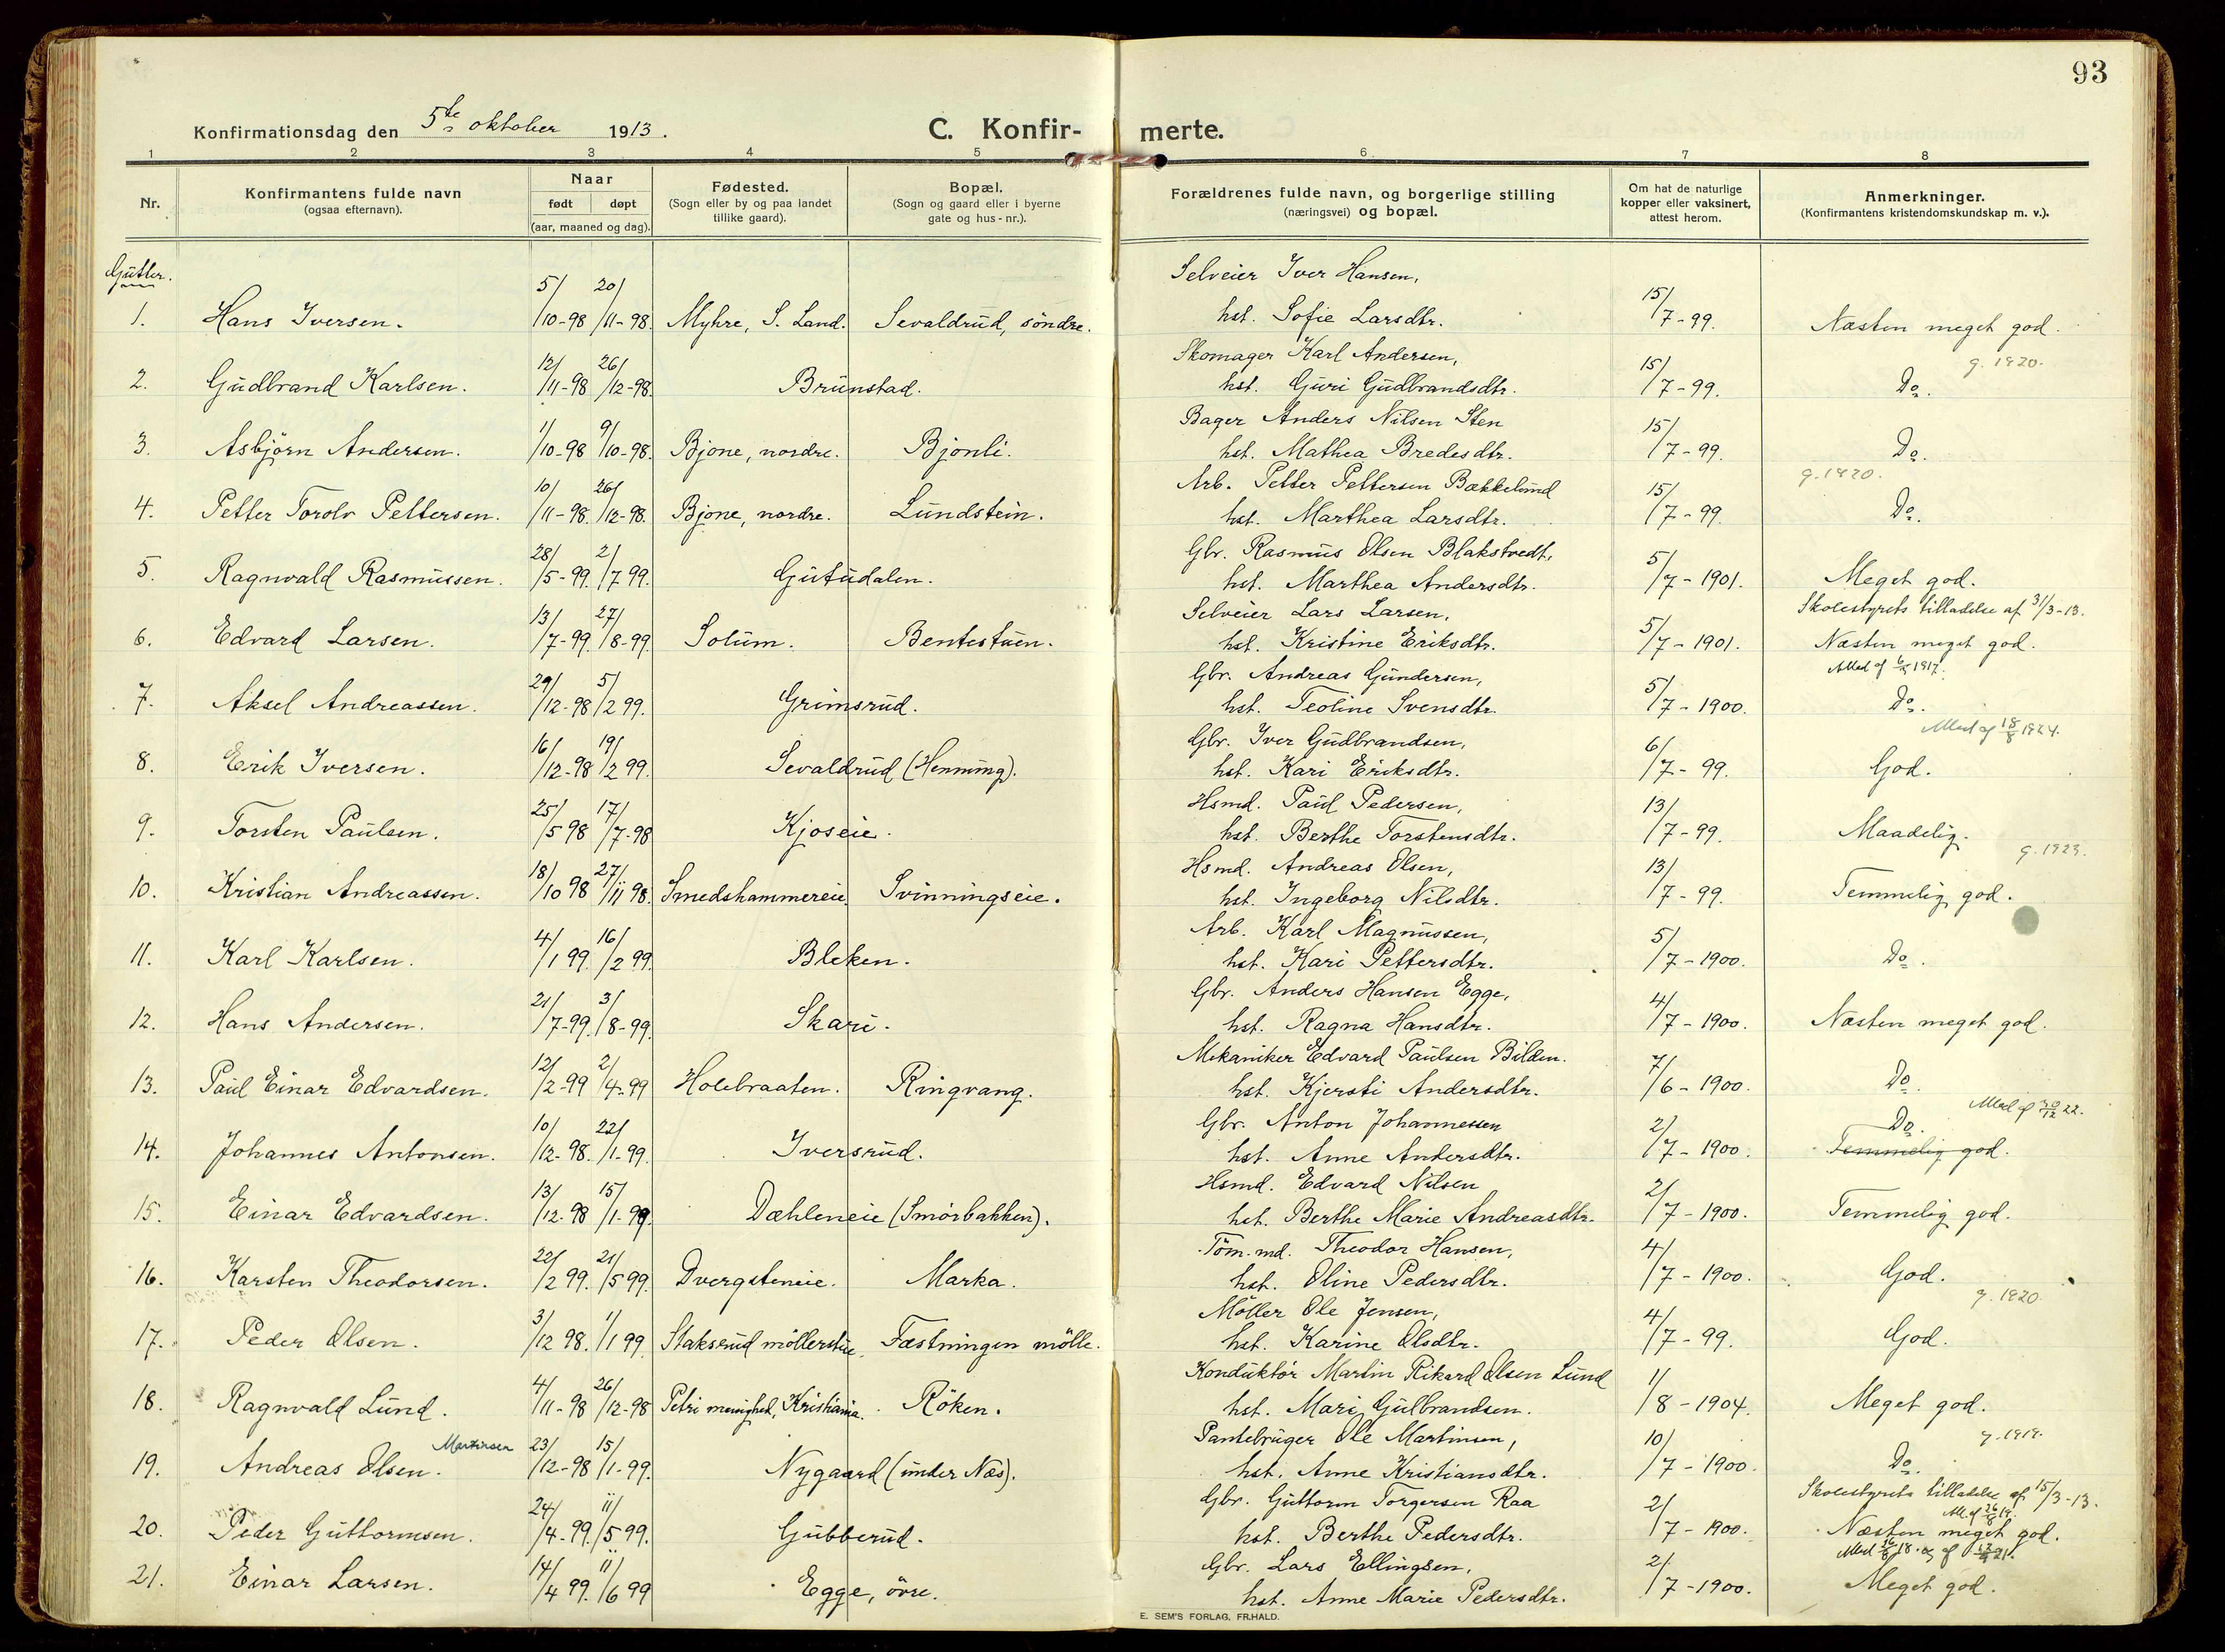 93
Konfirmationsdag den 5te oktober 1913.
C. Konfir-merte.
1 2 3 4 5 6 7 8
Nr.
Konfirmantens fulde navn
(ogsaa efternavn).
Naar
født døpt
(aar, maaned og dag).
Fødested.
(Sogn eller by og paa landet
tillike gaard).
Bopæl.
(Sogn og gaard eller i byerne
gate og hus-nr.).
Forældrenes fulde navn, og borgerlige stilling
(næringsvei) og bopæl.
Om hat de naturlige
kopper eller vaksinert,
attest herom.
Anmerkninger.
(Konfirmantens kristendomskundskap m. v.).
Gutter.
Selveier Iver Hansen,
1. Hans Iversen. 5/10-98 20/11-98. Myhre, S. Land. Sevaldrud, söndre. hst. Sofie Larsdtr. 15/7-99. Næsten meget god.
Skomager Karl Andersen, g. 1920.
2. Gudbrand Karlsen. 12/11-98 26/12-98. Brunstad. hst. Guri Gudbrandsdtr. 15/7-99. Do.
Bager Anders Nilsen Sten
3. Asbjörn Andersen. 1/10-98 9/10-98. Bjone, nordre. Bjönli. hst. Mathea Bredesdtr. 15/7-99. Do.
Arb. Petter Pettersen Bækkelund g. 1920.
4. Petter Torolv Pettersen. 10/11-98. 26/12-98. Bjone, nordre. Lundstein. hst. Marthea Larsdtr. 15/7-99. Do.
Gbr. Rasmus Olsen Blakstvedt,
5. Ragnvald Rasmussen. 28/5-99. 2/7 99. Gutudalen. hst. Marthea Andersdtr. 5/7-1901. Meget god.
Selveier Lars Larsen, Skolestyrets tilladelse af 31/3-13.
6. Edvard Larsen. 13/7-99. 27/8-99. Solum. Bentestuen. hst. Kristine Eriksdtr. 5/7-1901. Næsten meget god.
Gbr. Andreas Gundersen, 1917.
7. Aksel Andreassen. 29/12-98 5/2 99. Grimsrud. hst. Teoline Svensdtr. 5/7-1900. Do.
Gbr. Iver Gudbrandsen, 18/8 1924.
8. Erik Iversen. 16/12-98 19/2 99. Sevaldrud (Henning). hst. Kari Eriksdtr. 6/7-99. God.
Hsmd. Paul Pedersen,
9. Torsten Paulsen. 25/5 98 17/7-98 Kjoseie. hst. Berthe Torstensdtr. 13/7-99. Maadelig.
Hsmd. Andreas Olsen, g. 1923.
10. Kristian Andreassen. 18/10 98 27/11 98. Smedshammereie. Svinningseie. hst. Ingeborg Nilsdtr. 13/7-99. Temmelig god.
Arb. Karl Magnussen,
11. Karl Karlsen. 4/1 99. 16/2 99. Bleken. hst. Kari Pettersdtr. 5/7-1900. Do.
Gbr. Anders Hansen Egge,
12. Hans Andersen. 21/7-99. 3/8-99. Skari. hst. Ragna Hansdtr. 4/7-1900. Næsten meget god.
Mekaniker Edvard Paulsen Bilden.
13. Paul Einar Edvardsen. 12/2-99 2/4-99 Holebraaten. Ringvang. hst. Kjersti Andersdtr. 7/6-1900. Do.
Gbr. Anton Johannessen Do.
14. Johannes Antonsen. 10/12-98. 22/1-99. Iversrud. hst. Anne Andersdtr. 2/7-1900. Temmelig god.
Hsmd. Edvard Nilsen
15. Einar Edvardsen. 13/12-98 15/1-99. Dæhleneie (Smörbakken). hst. Berthe Marie Andreasdtr. 2/7-1900. Temmelig god.
Töm.md. Theodor Hansen,
16. Karsten Theodorsen. 22/2 99. 21/5 99. Dvergsteneie. Marka. hst. Oline Pedersdtr. 4/7-1900. God.
Möller Ole Jensen, g. 1920.
17. Peder Olsen. 3/12 98. 1/1 99. Staksrud möllerstue. Fæstningen mölle. hst. Karine Olsdtr. 4/7-99. God.
Konduktör Martin Rikard Olsen Lund
18. Ragnvald Lund. 4/11-98 26/12-98 Petri menighed, Kristiania. Röken. hst. Mari Gulbrandsen. 1/8-1904. Meget god.
Martinsen Pantebruger Ole Martinsen, g. 1919.
19. Andreas Olsen. 23/12-98 15/1-99. Nygaard (under Næs). hst. Anne Kristiansdtr. 10/7-1900. Do.
Gbr. Guttorm Torgersen Raa Skolestyrets tilladelse af 15/3-13.
20. Peder Guttormsen. 24/4-99. 11/5 99. Gubberud. hst. Berthe Pedersdtr. 2/7-1900. Næsten meget god.
Gbr. Lars Ellingsen,
21. Einar Larsen. 14/4 99. 11/6 99 Egge, övre. hst. Anne Marie Pedersdtr. 2/7-1900. Meget god.
E. SEM'S FORLAG, FR.HALD.